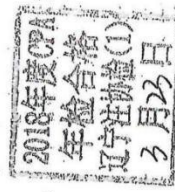 2018年度CPA
年检合格
辽宁注协验(1)
3月23日